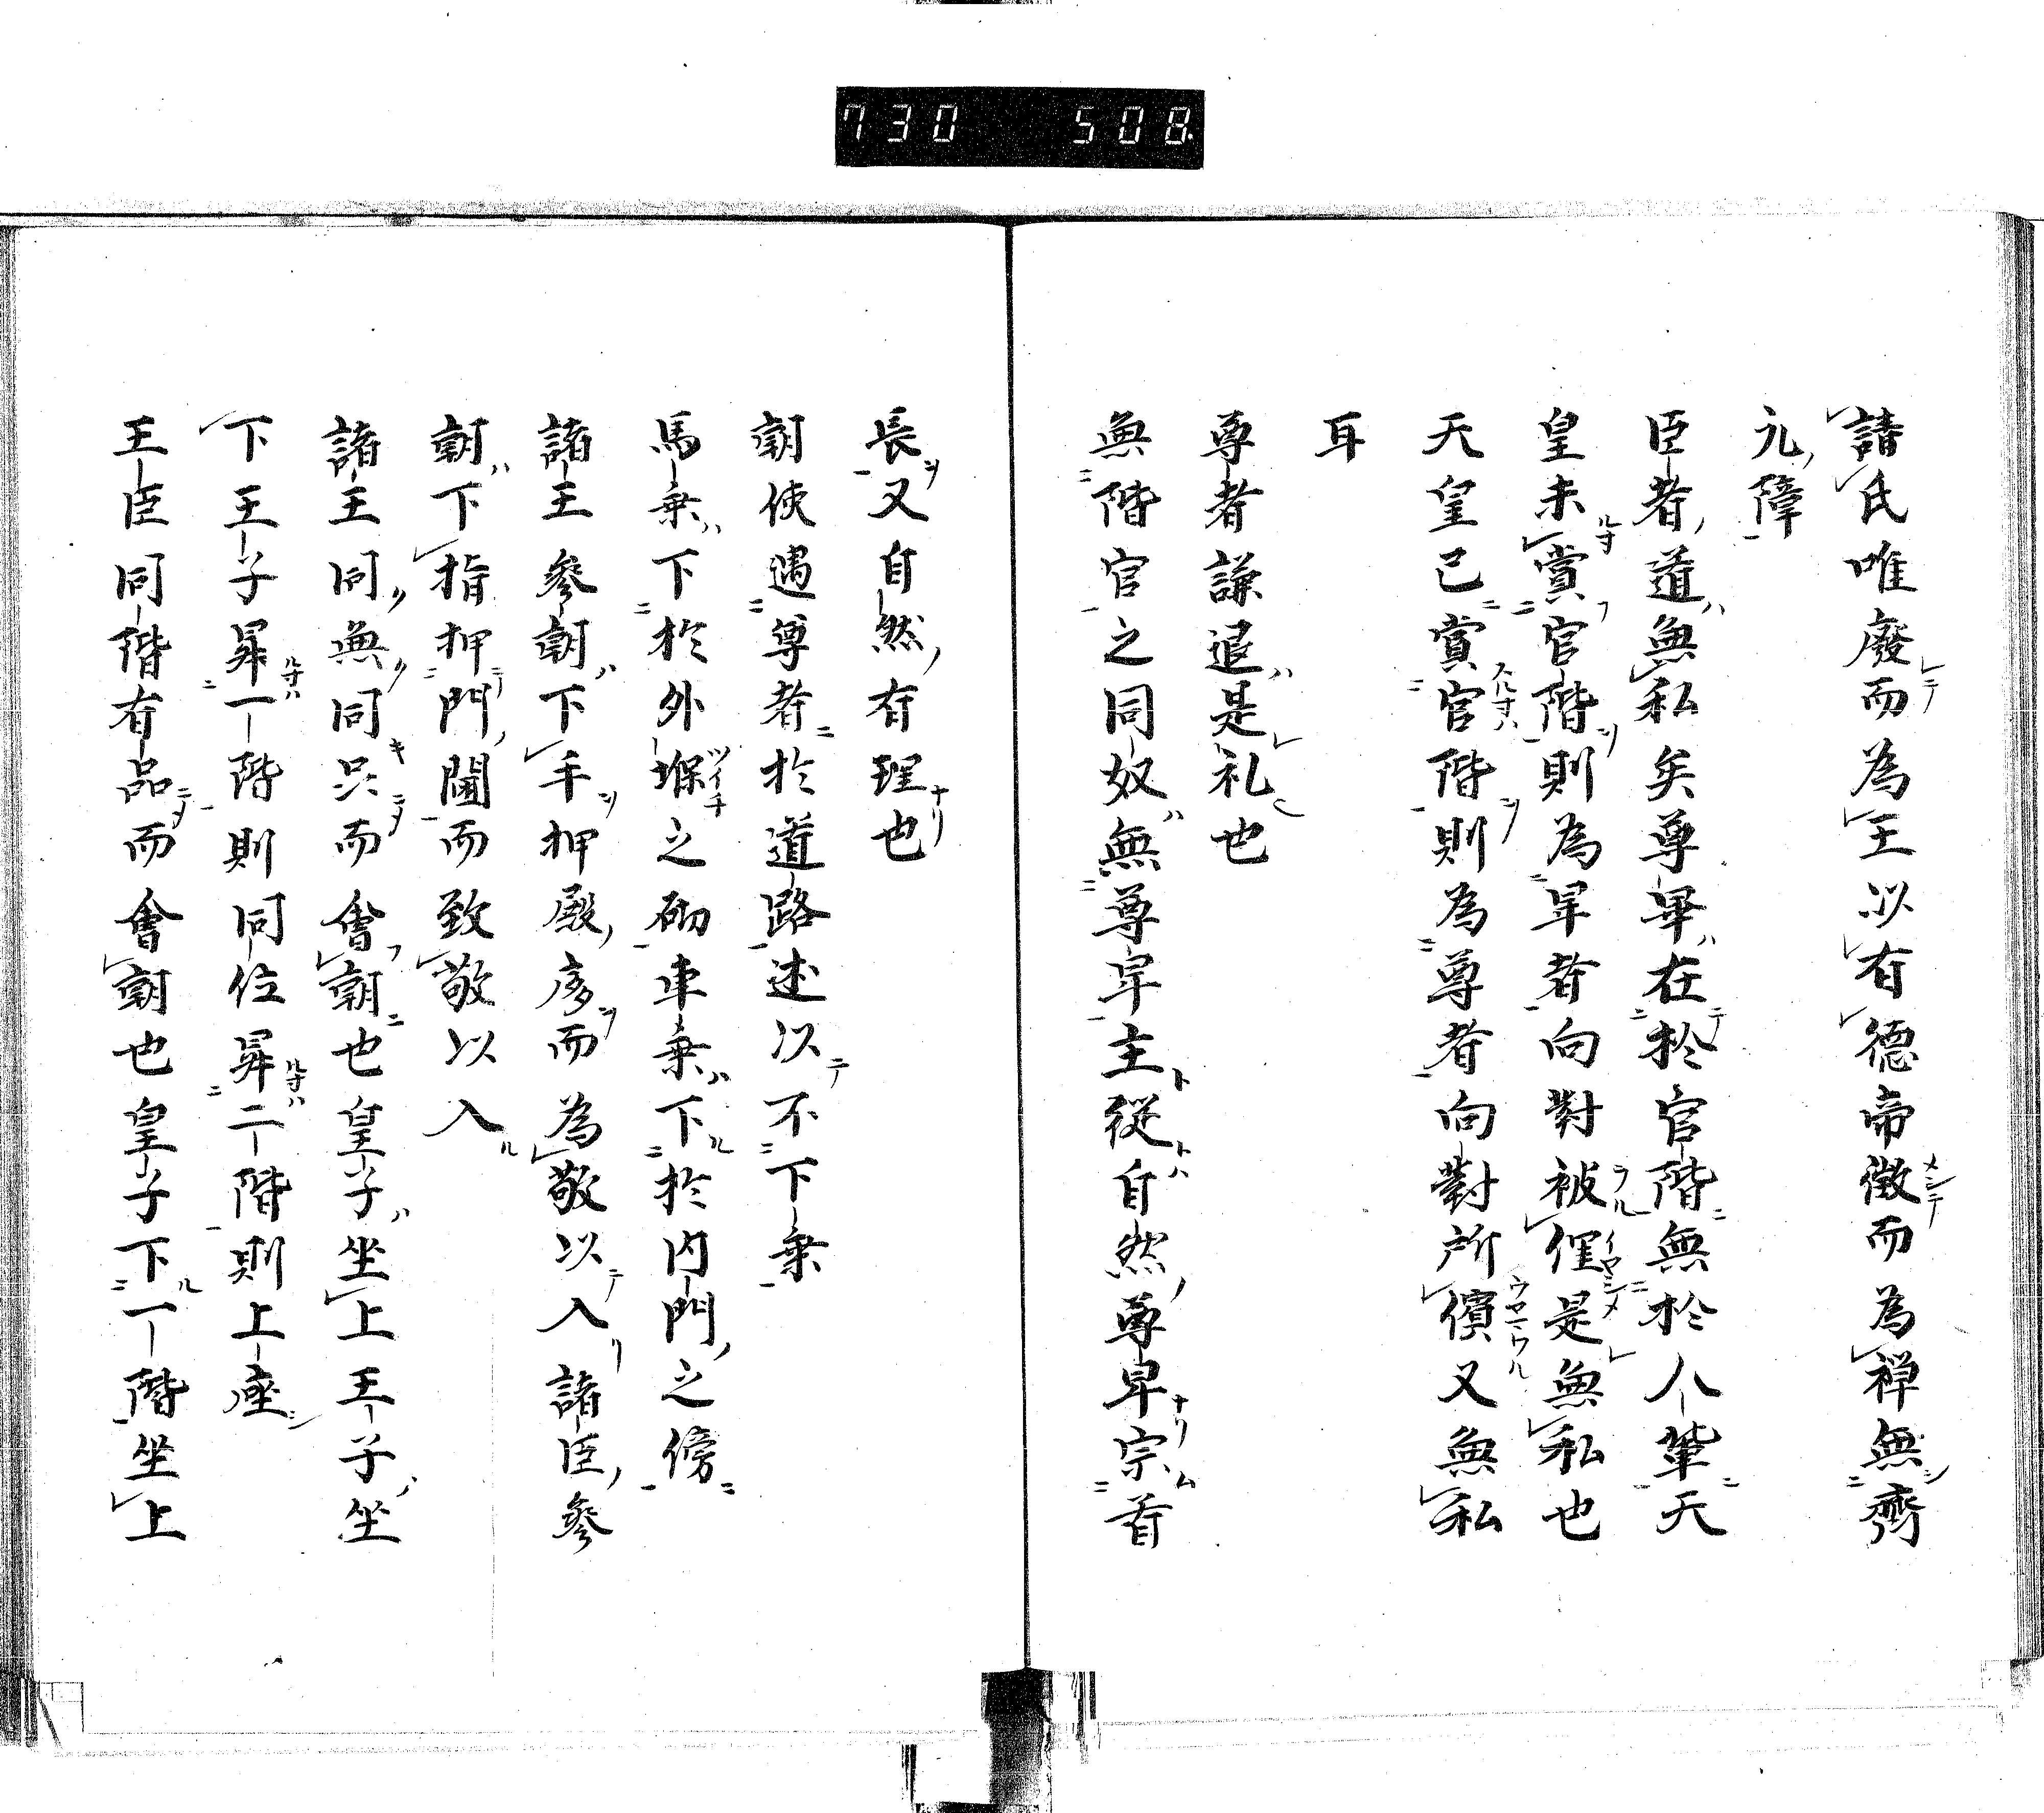 730 508
諸氏唯廢而為王以有德帝徴而為禅無齊
元障
臣者道無私矣尊卑在於官階無於人輩天
皇未賞官階則為卑者向對被催是無私也
天皇已賞官階則為尊者向對所儐又無私
耳
尊者謙退是礼也
無階官之同奴無尊卑主從自然尊卑宗首
長又自然有理也
朝使遇尊者於道路述以不下乗
馬乗下於外堢之砌車乗下於内門之傍
諸王參朝下手押殿序而為敬以入諸臣參
朝下指押門閫而致敬以入
諸王同無同只而會朝也皇子坐上王子坐
下王子昇一階則同位昇二階則上座
王臣同階有品而會朝也皇子下一階坐上